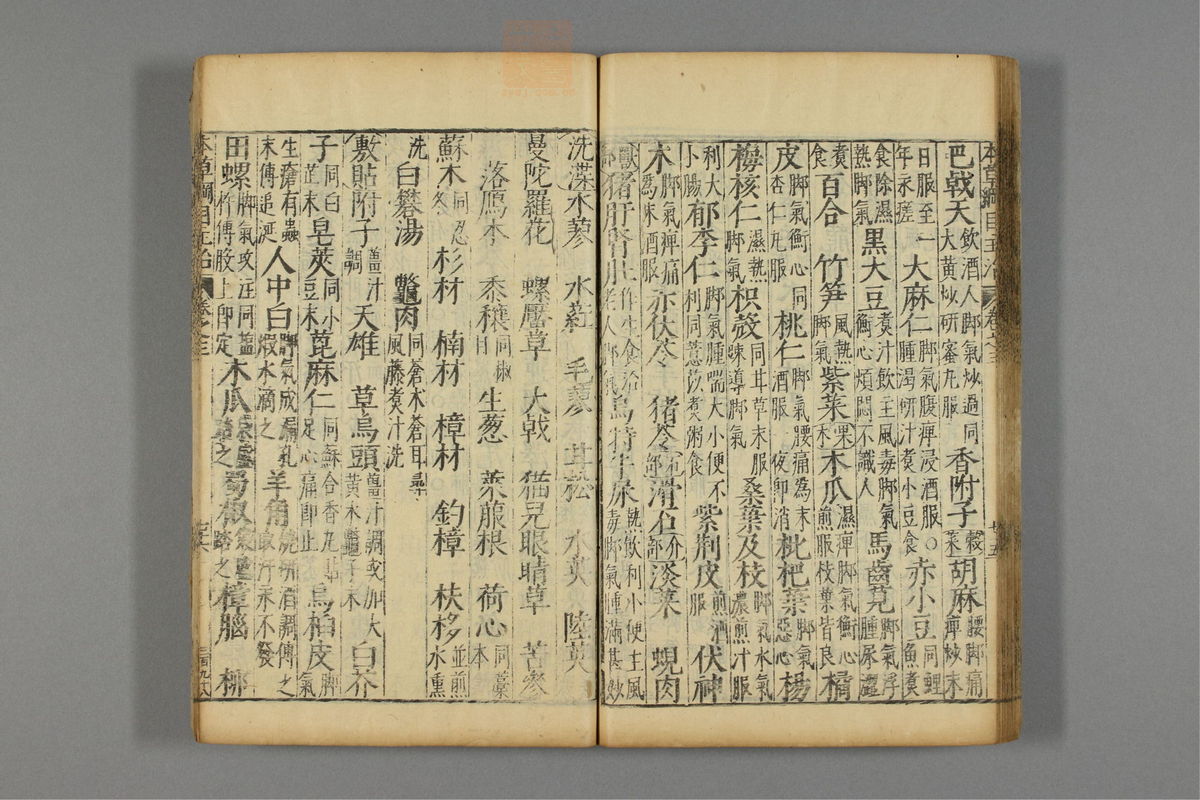 本草綱目主治 卷之三 廿五
巴戟天飲酒人腳氣炒過同大黃炒研蜜丸服 香附子 胡麻腰腳痛痺炒末
日服至一年永瘥 大麻仁腳氣腹痺浸酒服腫渴研汁煮小豆食○赤小豆同鯉魚煮
食除濕熱腳氣 黑大豆煮汁飲主風毒腳氣衝心煩悶不識人 馬齒莧腳氣浮腫尿澀
煮食 百合 竹笋風熱腳氣 紫菜果木 木瓜濕痺腳氣衝心煎服枝葉皆良 橘
皮腳氣衝心同杏仁丸服 桃仁腳氣腰痛為末酒服一夜即消 枇杷葉腳氣惡心 楊
梅核仁濕熱腳氣 枳殼同甘草末服疎導腳氣 桑葉及枝腳氣水氣濃煎汁服
利大小腸 郁李仁腳氣腫喘大小便不利同薏苡煮粥食 紫荆皮煎酒服 伏神
木腳氣痺痛為末酒服 赤伏苓 猪苓 滑石 淡菜 蜆肉
獸部 猪肝腎肚作生食治老人腳氣 烏特牛尿熱飲利小便主風毒腳氣腫滿甚妙
洗渫水蓼 水葒 毛蓼 甘松 水英 陸英
曼陀羅花 螺厴草 大戟 猫兒眼睛草 苦參
落鴈木 黍穰同椒目 生葱 萊菔根 荷心同藁本
蘇木同忍冬 杉材 楠材 樟材 釣樟 枎栘並煎水熏
洗 白礬湯 鼈肉同蒼朮蒼耳尋風藤煮汁洗
敷貼附子薑汁調 天雄 草烏頭薑汁調或加大黃木鼈子末 白芥
子同白芷末 皂莢同小豆末 蓖麻仁同蘇合香丸貼足心痛即止 烏桕皮腳氣
生瘡有蟲末傅追涎 人中白腳氣成漏孔煅水滴之 羊角燒研酒調傅之取汗永不發
田螺腳氣攻注同鹽竹傅股上即定 木瓜 蜀椒 樟腦 柳
本草綱目主治 卷之三 廿六